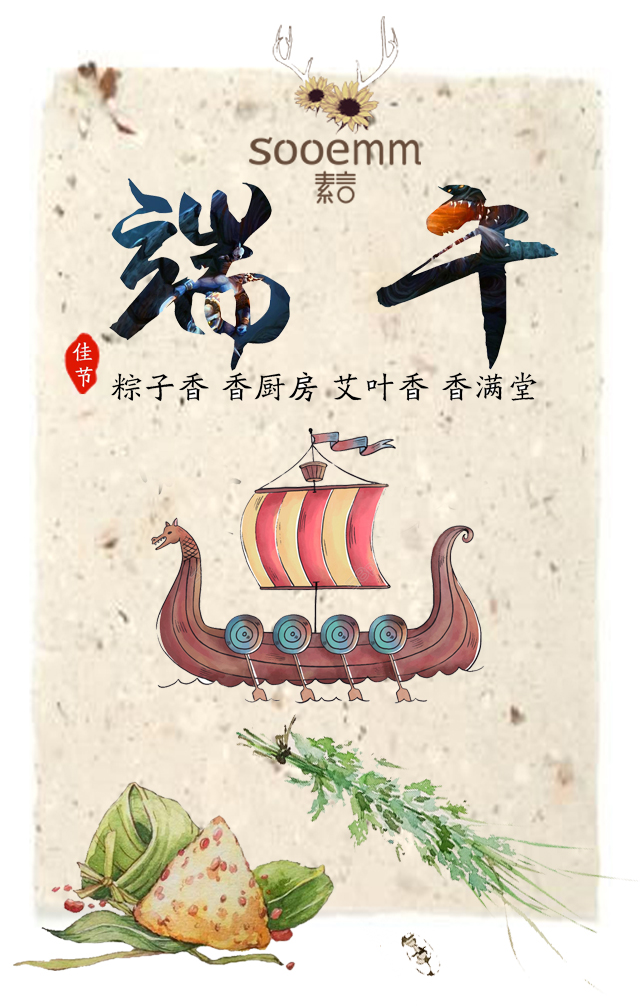 sooemm
素言
端午
佳节
粽子香 香厨房 艾叶香 香满堂